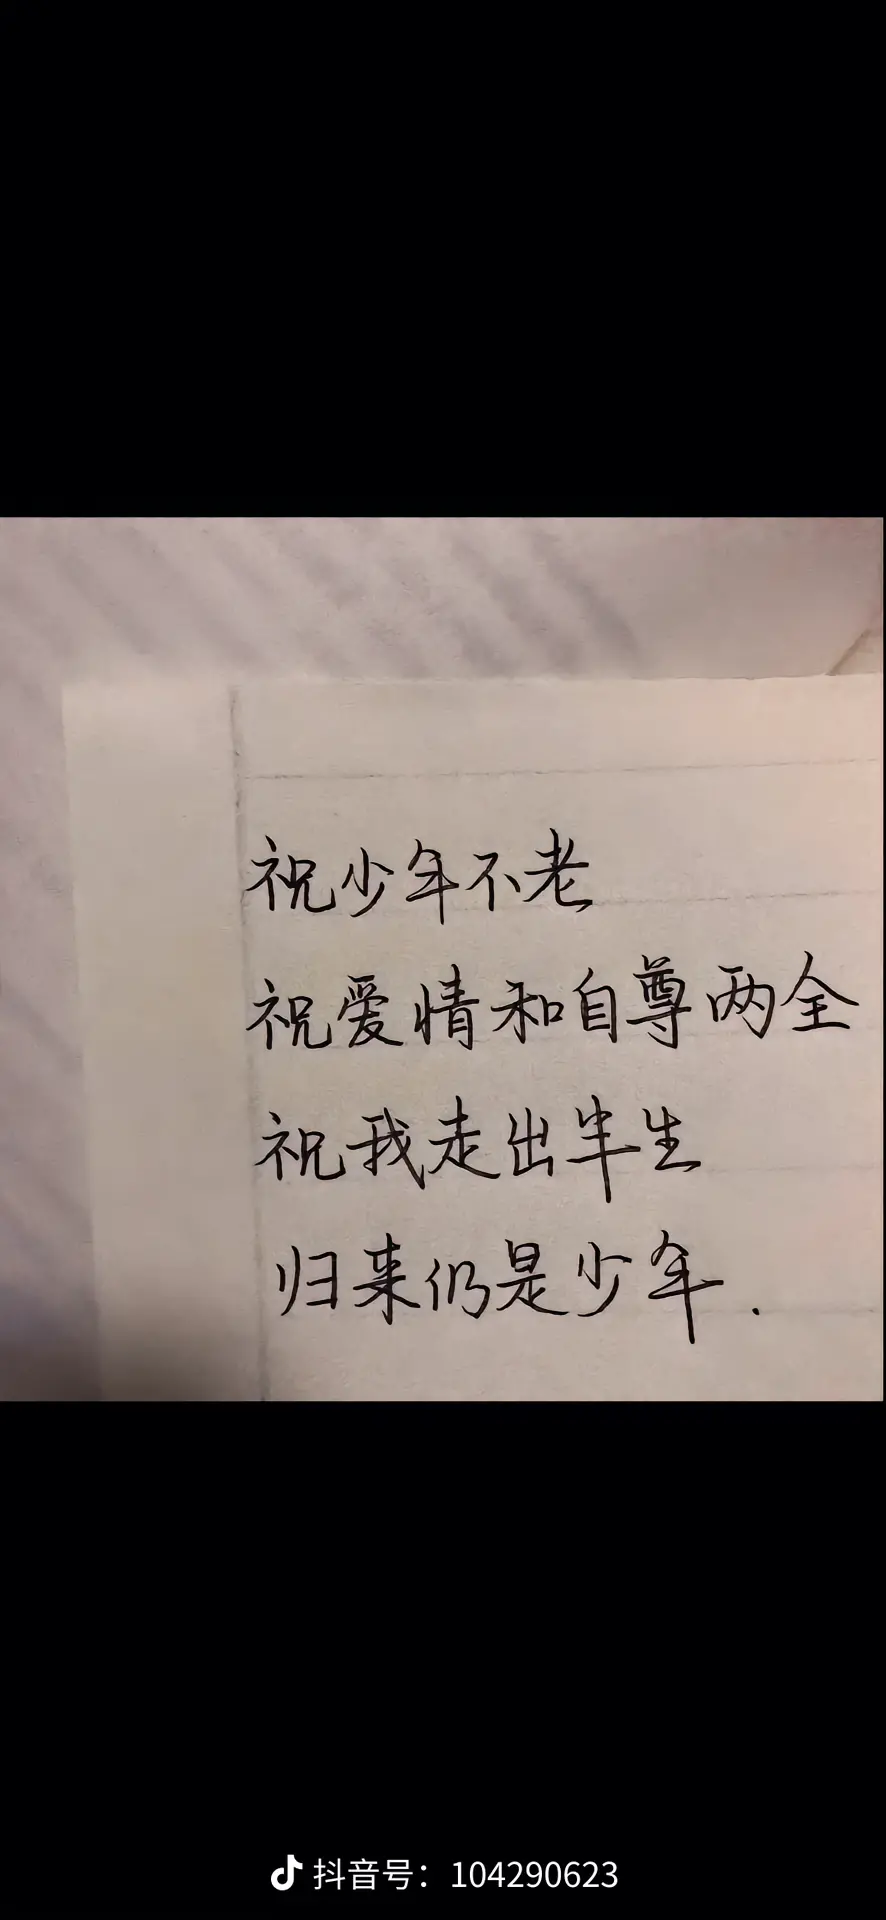 祝少年不老
祝爱情和自尊两全
祝我走出半生
归来仍是少年.
抖音号：104290623